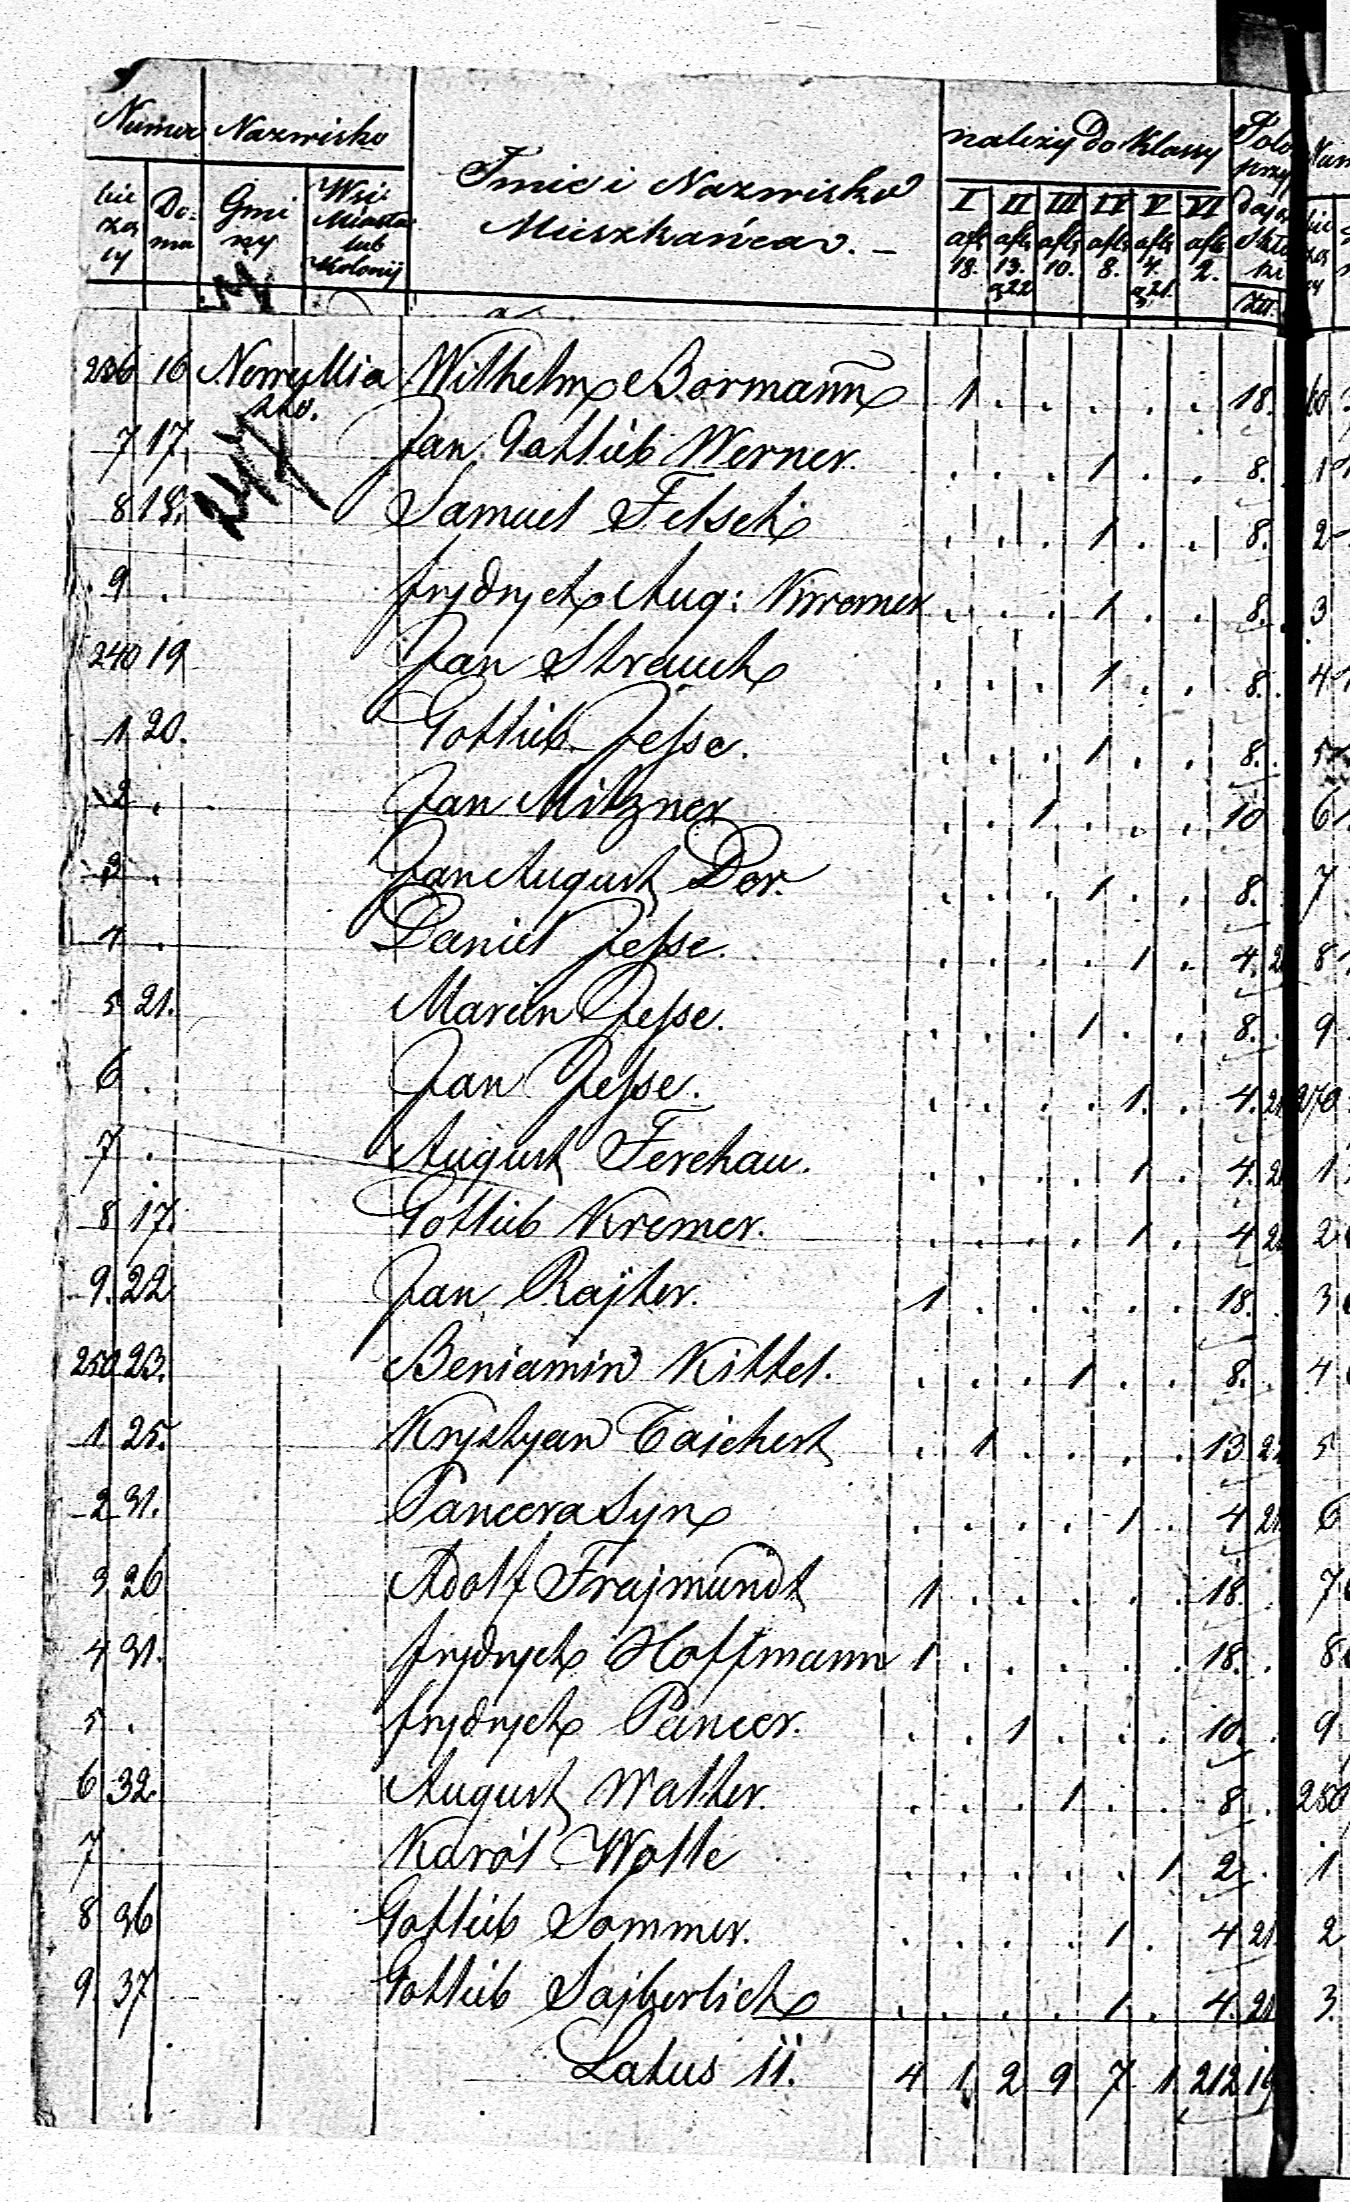 Numer Nazwisko Imie i Nazwisko Mieszkańca. należy do Klassy
bie żą cy Do- mu Gmi ny Wsi Miasta lub Kolonij I II III IV V VI
18. 13. g 22 10. 8. 4. g 21. 2. Złt.
236 16 Nowe Mia Wilhelm Bormann 1 . . . . . 18. 60
sto.
7 17. Jan Gottlieb Werner. . . . 1 . . 8. 1
8 18. Samuel Fetsch . . . 1 . . 8. 2
9 . Frydrych Aug: Kremer . . . 1 . . 8. 3
240 19 Jan Strauch . . . 1 . . 8. 4
1 20. Gottlieb Jesse. . . . 1 . . 8. 5
2 . Jan Mitzner . . 1 . . . 10 6
3 . Jan August Dor. . . . 1 . . 8. 7
4 . Daniel Jesse. . . . . 1 . 4. 21 8
5 21. Marcin Jesse. . . . 1 . . 8. 9
6 . Jan Jesse. . . . . 1. . 4. 21 270
7 . August Ferchau. . . . . 1 . 4. 21 1
8 17. Gottlieb Kremer. . . . . 1 . 4 21 2
9. 22 Jan Rajter. 1 . . . . . 18. 3
250 23. Beniamin Kittel. . . . 1 . . 8. 4
1. 25. Krystyan Taichert . 1 . . . . 13 22 5
2 31. Pancera Syn . . . . 1 . 4 21 6
3 26 Adolf Frajmundt 1 . . . . . 18. 7
4 31. Frydrych Hoffmann 1 . . . . . 18. 8
5 . Frydrych Pancer. . . 1 . . . 10. 9
6 32. August Walter. . . . 1 . . 8 . 280
7 . Karól Wolle . . . . . 1 2 . 1
8 36 Gottlieb Sommer. . . . . 1 . 4 21. 2
9 37 Gottlieb Sajberlich . . . . 1 . 4. 21 3.
Latus 11. 4 1 2 9 7 1 212 19